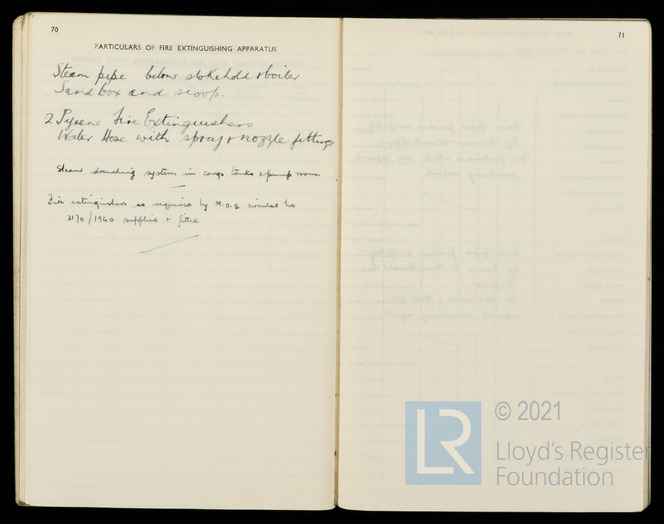 70
PARTICULARS OF FIRE EXTINGUISHING APPARATUS.
Steam pipe below stokehold & boiler
Sand box and scoop.
2 Pyrene Fire Extinguishers
Water Hose with spray & nozzle fittings
Steam drenching system in cargo tanks & pump rooms.
Fire extinguishers as required by M.O.S circular No
2170/1940 supplied & fitted
71
LR
© 2021
Lloyd's Register
Foundation